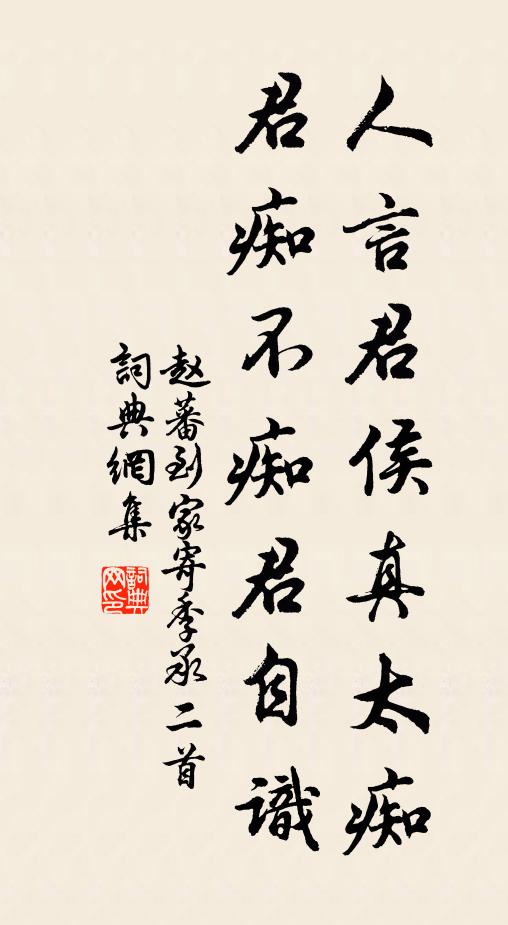 人言君侯真太痴
君痴不痴君自識
赵蕃到家寄季承二首
詞典網集
詞典網印